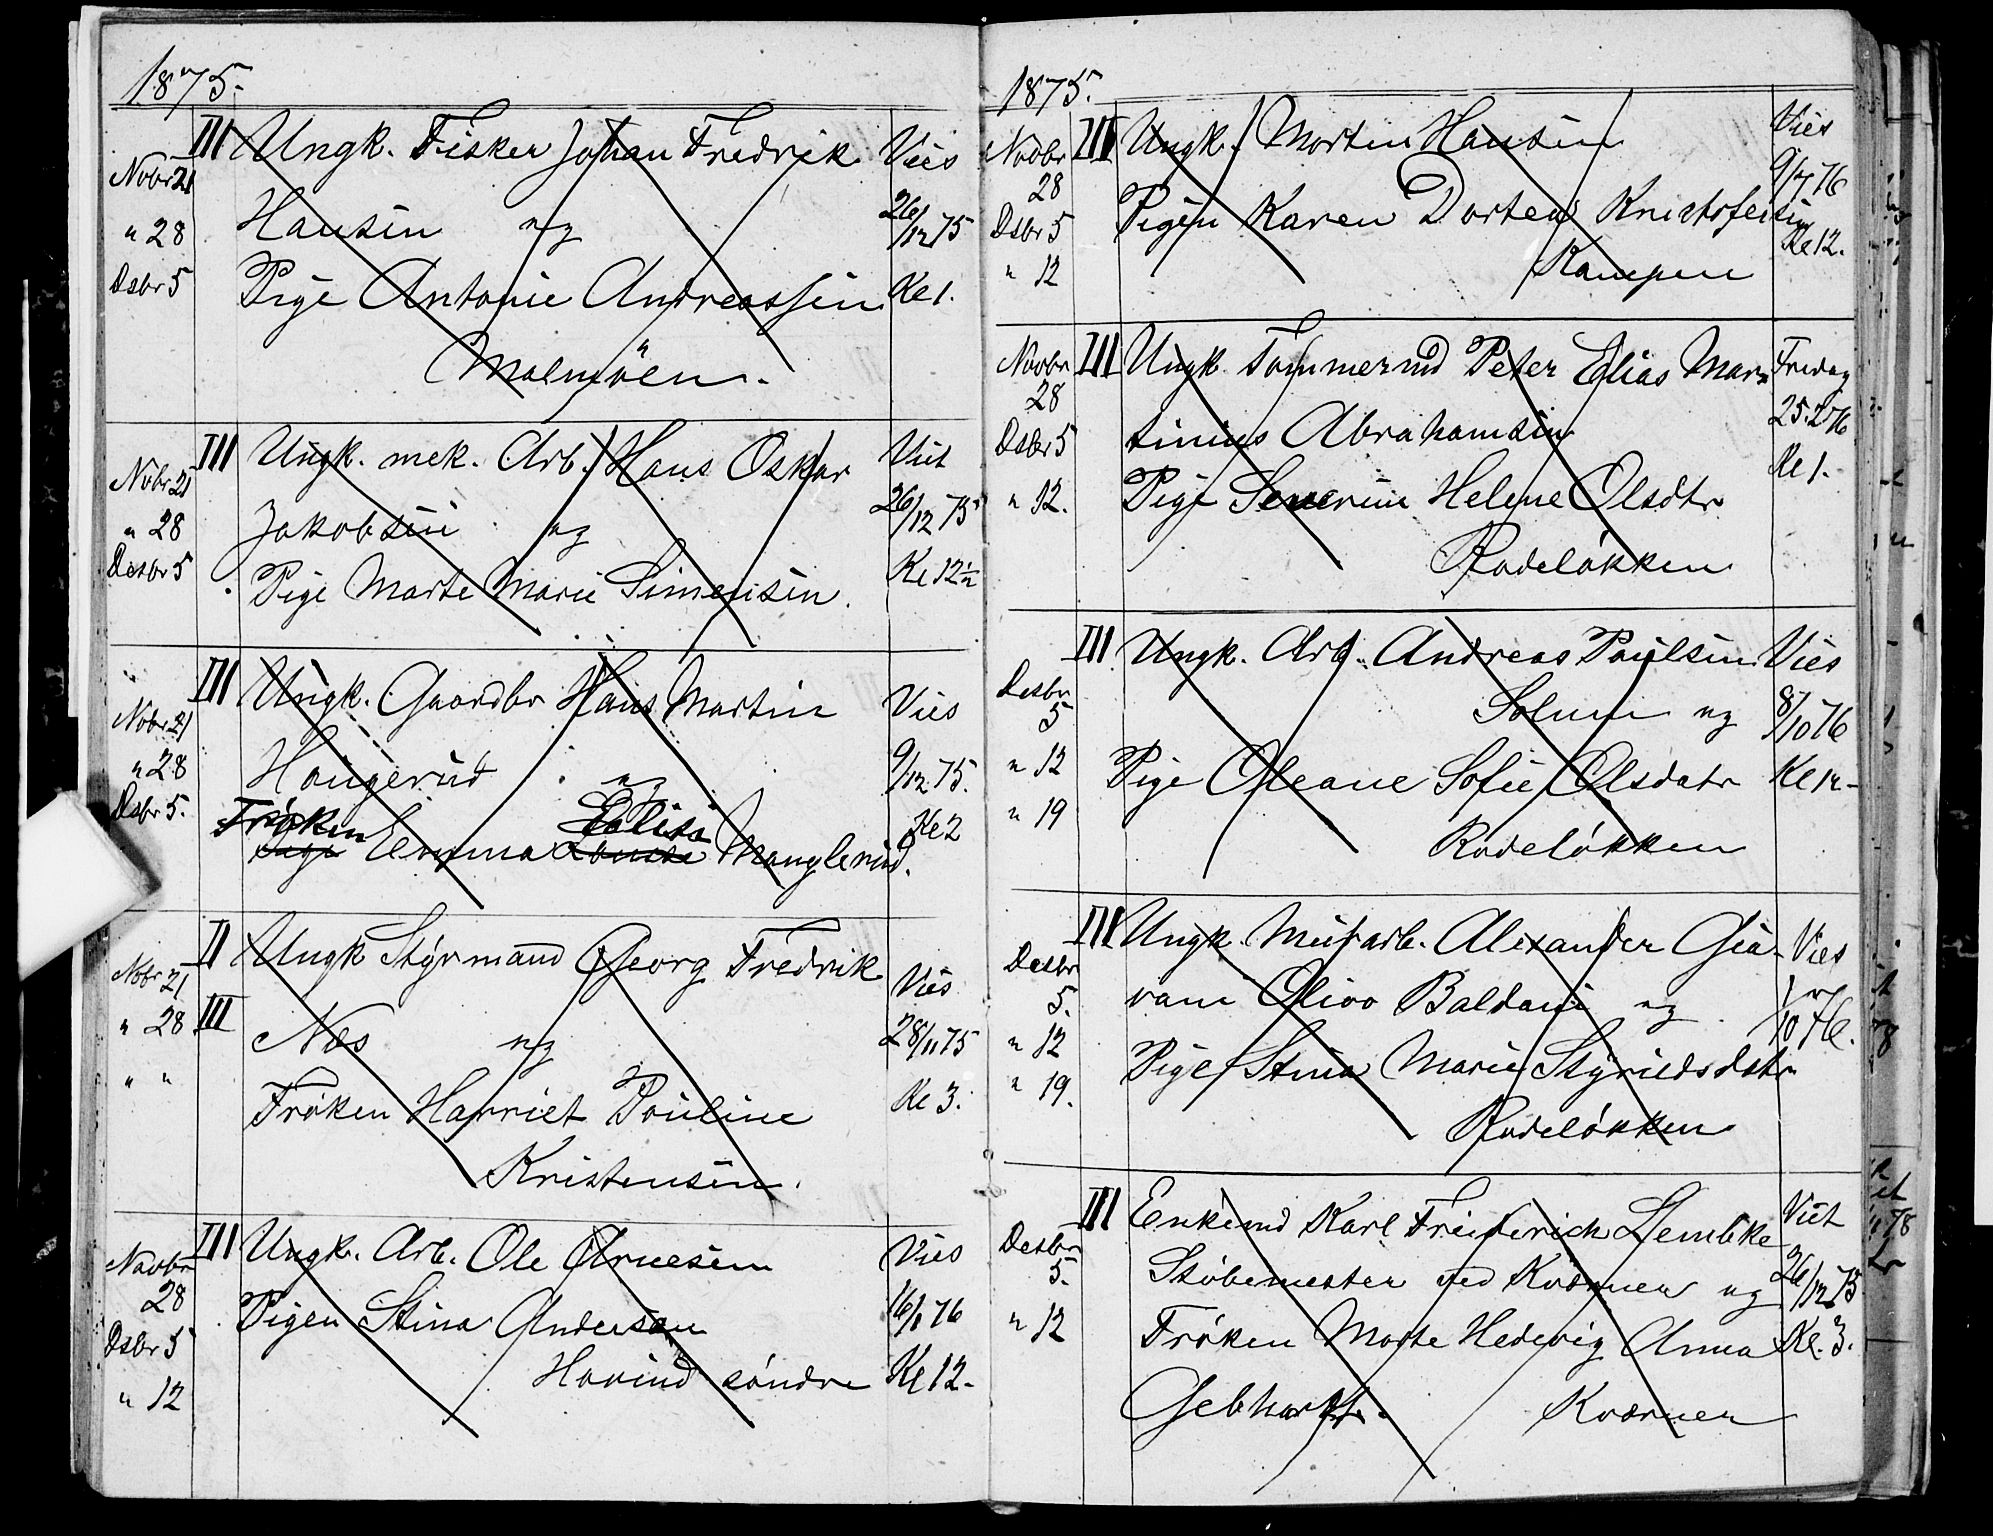 1875.
III Ungk. Fisker Johan Fredrik Vies
Nvbr 21
Hansen og 26/12 75
" 28
Dsbr 5 Pige Antonie Andreassen Kl 1.
Malmöen.
III Ungk. mek. Arb. Hans Oskar Viet
Nvbr 21 26/12 75
" 28 Jakobsen og
Desbr 5 Pige Marte Marie Simensen. Kl 12½
III Ungk. Gaardbr Hans Martin Vies
Nobr 21
" 28 Haugerud og 9/12 75.
Dsbr 5. Frøken Elise Kl 2
Pige Emma Louise Manglerud.
II Ungk Styrmand Georg Fredrik
Nobr 21 Vies
" 28 III Næs og 28/11 75
" "
Frøken Harriet Pouline Kl 3.
Kristensen.
III Ungk. Arb. Ole Arnesen Vies
Novbr
28 Pigen Stina Anderson 16/1 76
Dsbr 5
Hovind søndre Kl 12.
" 12
1875.
III Ungk. Morten Hansen Vies
Novbr
28 9/7 76
Dsbr 5 Pigen Karen Dortea Kristofersen
Kl 12.
" 12 Kampen
III Ungk. Tømmermd Peter Elias Mar Fredag
Novbr
28 25.2 76
Dsbr 5 tinius Abrahamsen
Kl 1.
" 12. Pige Severine Helene Olsdtr
Rodeløkken
III Ungk. Arb. Andreas Paulsen Vies
Desbr
5 Solum og 8/10 76
" 12 Pige Oleane Sofie Olsdatr Kl
" 19
Rodeløkken
III Ungk. Murarb. Alexander Gia- Vies
Desbr
5. vani Olivo Baldani og
" 12 10 76.
" 19. Pige Stina Marie
Rodeløkken
III Enkemd Karl Freiderich Lembke Viet
Desbr
5. Støbemester ved Kværner og 26/12 75
" 12 Frøken Marte Hedevig Anna Kl. 3.
Kværner